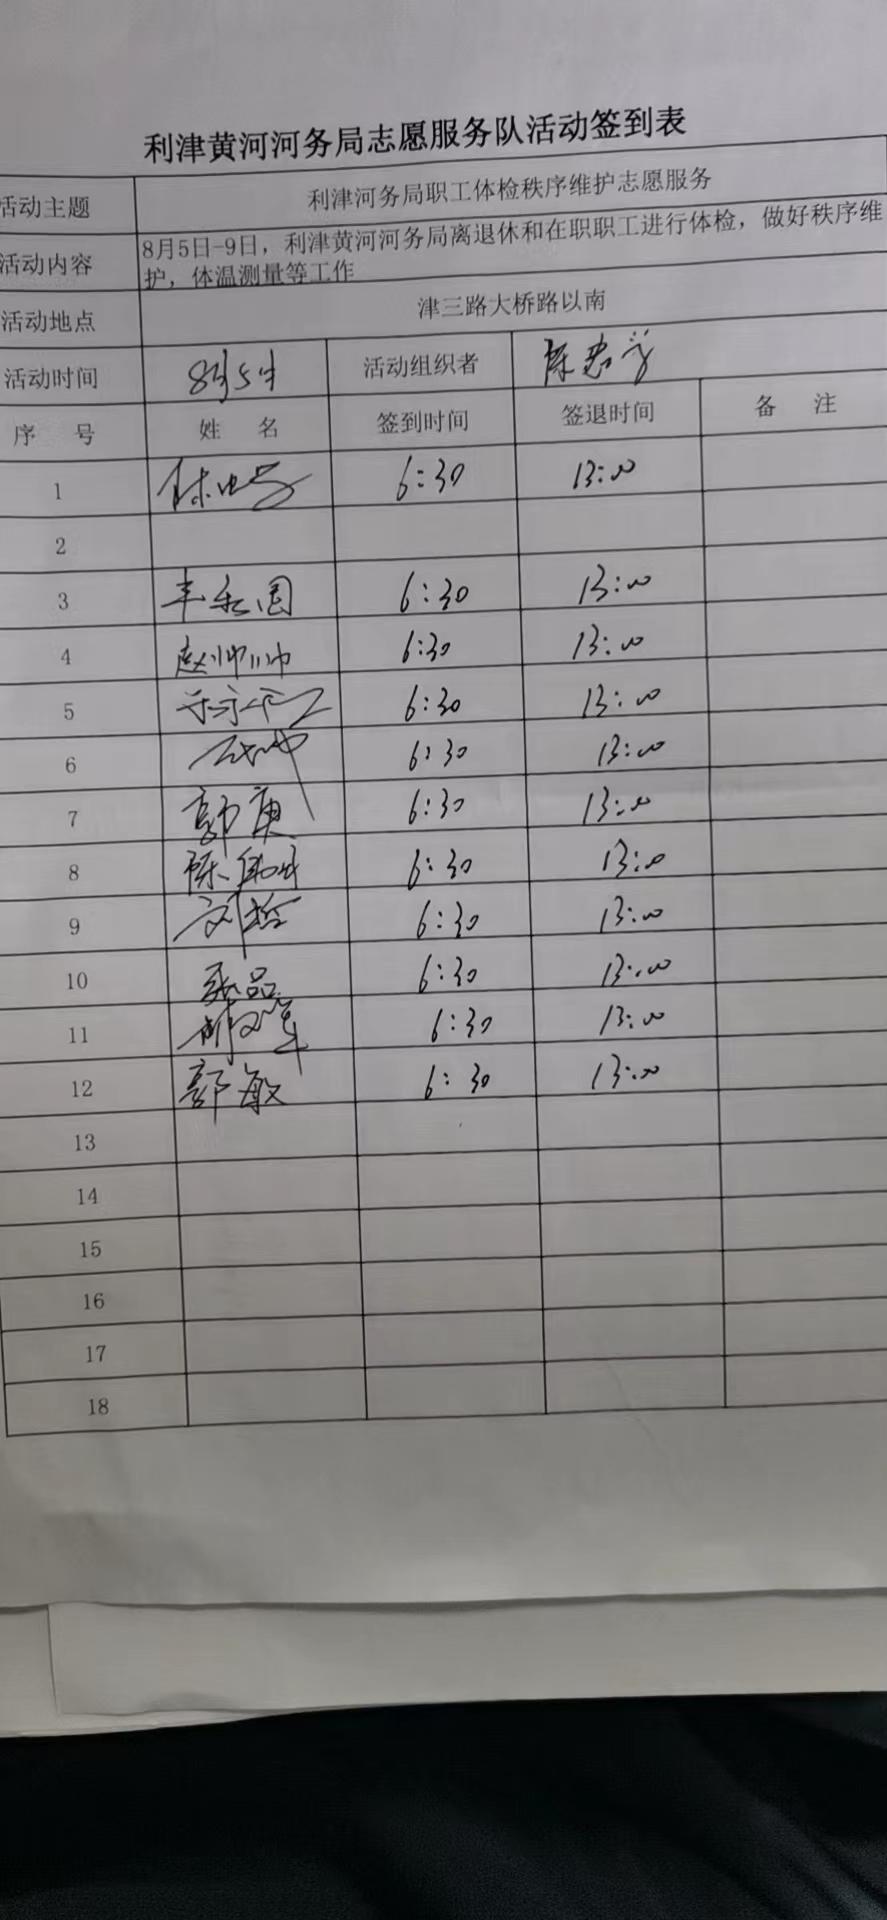 利津黄河河务局志愿服务队活动签到表
活动主题 利津河务局职工体检秩序维护志愿服务
活动内容 8月5日-9日，利津黄河河务局离退休和在职职工进行体检，做好秩序维
护，体温测量等工作
活动地点 津三路大桥路以南
活动时间 8月5日 活动组织者
序 号 姓 名 签到时间 签退时间 备 注
1 6:30 13:00
2
3 6:30 13:00
4 赵帅帅 6:30 13:00
5 6:30 13:00
6 6:30 13:00
7 郭庚 6:30 13:00
8 6:30 13:00
9 刘哲 6:30 13:00
10 张品 6:30 13:00
11 6:30 13:00
12 郭敏 6:30 13:00
13
14
15
16
17
18